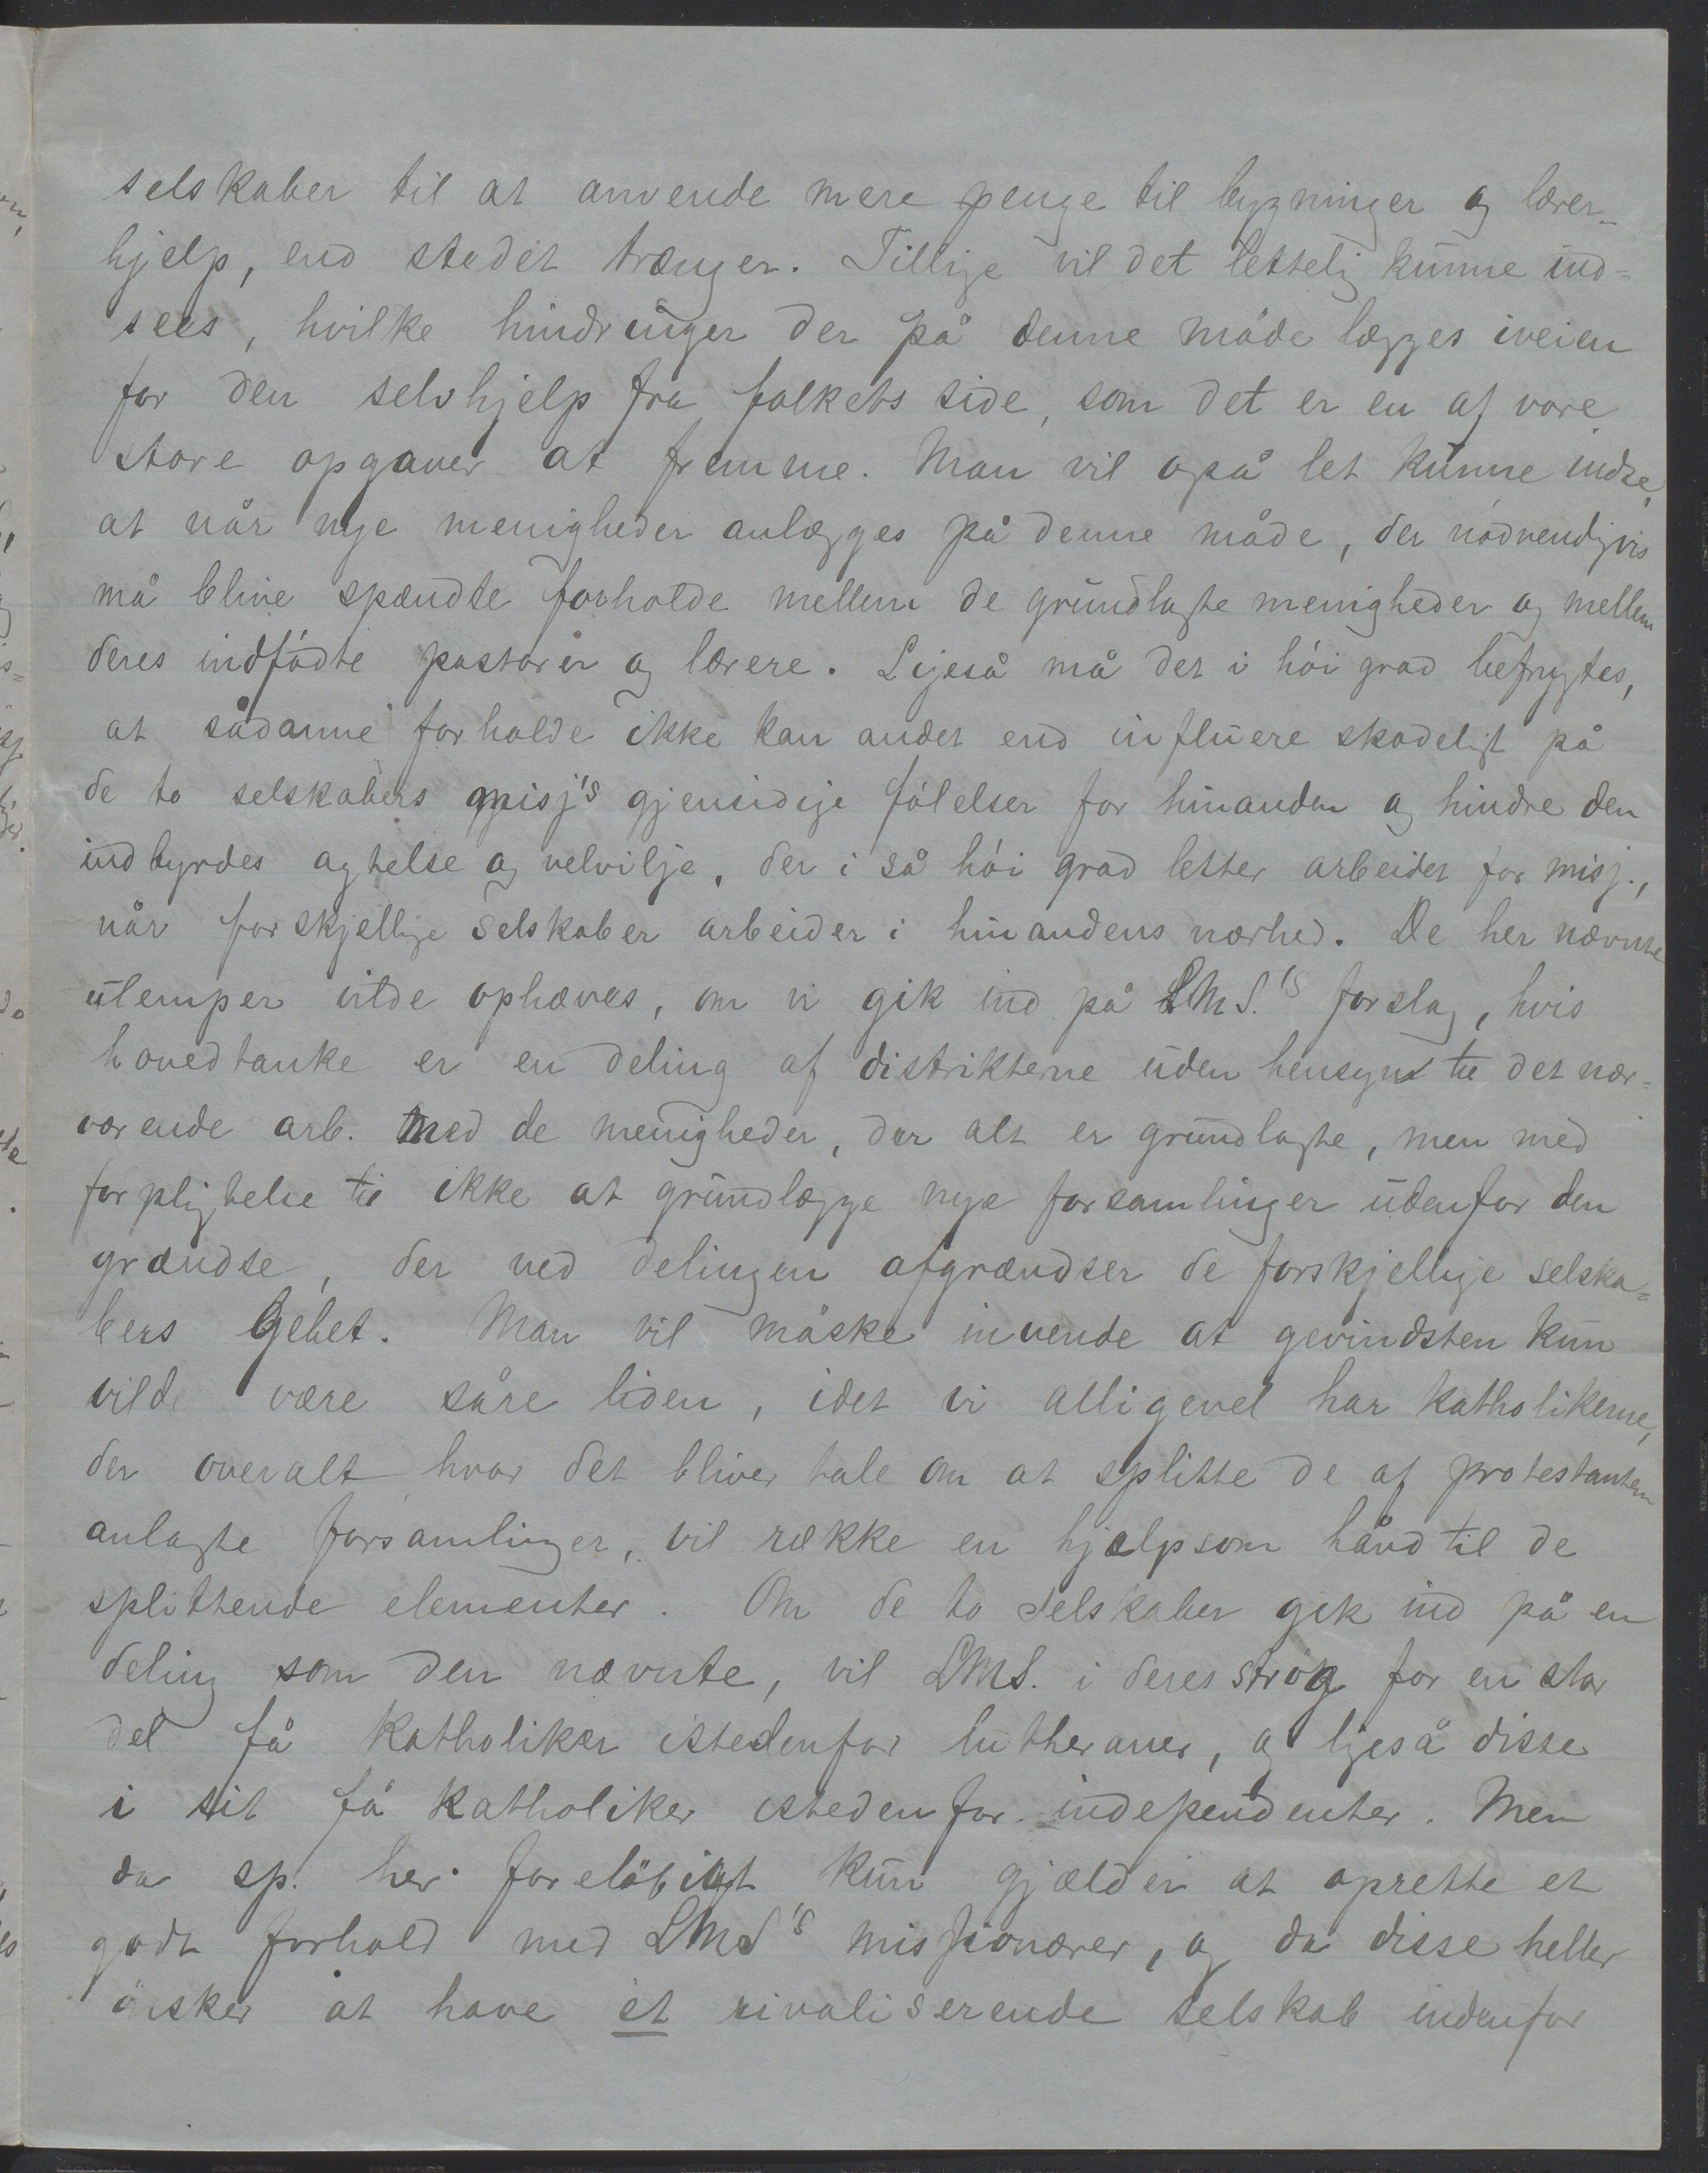 selskaber til at anvende mere penge til bygninger og lærer-
hjelp, end stedet trænger. Tillige vil det lettelig kunne ind=
sees, hvilke hindringer der på denne måde lægges iveien
for den selvhjelp fra folkets side, som det er en af vore
store opgaver at fremme. Man vil også let kunne indse,
at når nye menigheder anlægges på denne måde, der nødvendigvis
må blive spændte forholde mellem de grundlagte menigheder og mellem
deres indfødte pastorer og lærere. Ligeså må det i høi grad befrygtes,
at sådanne forholde ikke kan andet end influere skadeligt på
de to selskabers misj's gjensidige følelser for hinanden og hindre den
indbyrdes agtelse og velvilje, der i så høi grad letter arbeidet for misj.,
når forskjellige selskaber arbeider i hinandens nærhed. De her nævnte
ulemper vilde ophæves, om vi gik ind på LMS.'s forslag, hvis
hovedtanke er en deling af distrikterne uden hensyn til det nær=
værende arb. med de menigheder, der alt er grundlagte, men med
forpligtelse til ikke at grundlægge nye forsamlinger udenfor den
grændse, der ved delingen afgrændser de forskjellige selska=
bers Gebet. Man vil måske invende at gevindsten kun
vilde være såre liden, idet vi alligevel har katholikerne,
der overalt hvor det bliver tale om at splitte de af protestanten
anlagte forsamlinger, vil række en hjælpsom hånd til de
splittende elementer. Om de to selskaber gik ind på en
deling som den nævnte, vil LMS. i deres strøg for en stor
del få katholiker istedenfor lutheraner, og ligeså disse
i sit få katholiker istedenfor independenter. Men
da sp. her foreløbigt kun gjælder at oprette et
godt forhold med LMS's missionærer, og da disse heller
ønsker at have et rivaliserende selskab indenfor